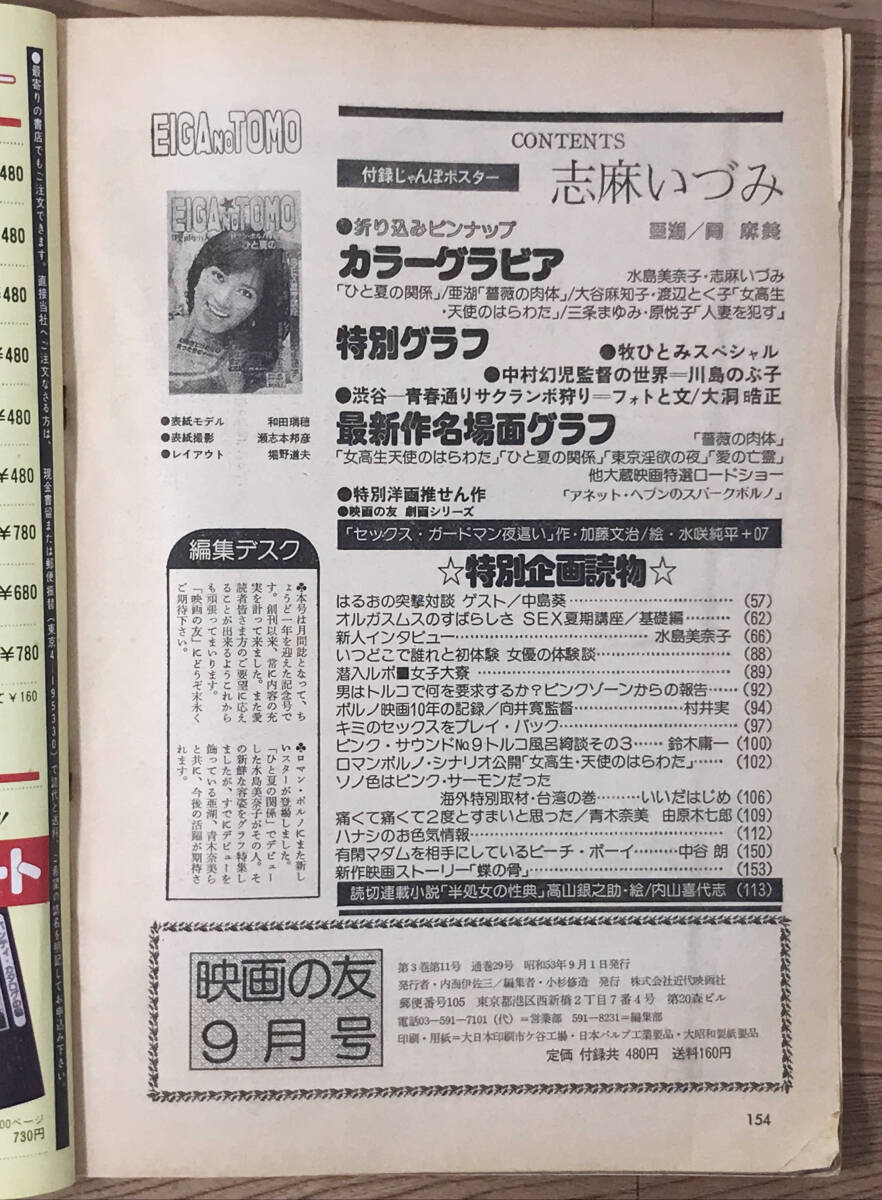 EIGANOTOMO
CONTENTS
付録じゃんぼポスター
志麻いづみ
●折り込みピンナップ
亜湖/岡 麻美
カラーグラビア
水島美奈子・志麻いづみ
「ひと夏の関係」/亜湖「薔薇の肉体」/大谷麻知子・渡辺とく子「女高生
・天使のはらわた」/三条まゆみ・原悦子「人妻を犯す」
特別グラフ
●牧ひとみスペシャル
●中村幻児監督の世界=川島のぶ子
●渋谷―青春通りサクランボ狩り=フォトと文/大洞晧正
最新作名場面グラフ
「薔薇の肉体」
「女高生天使のはらわた」「ひと夏の関係」「東京淫欲の夜」「愛の亡霊」
他大蔵映画特選ロードショー
●特別洋画推せん作
「アネット・ヘブンのスパークポルノ」
●映画の友 劇画シリーズ
「セックス・ガードマン夜這い」作・加藤文治/絵・水咲純平+07
☆特別企画読物☆
はるおの突撃対談 ゲスト/中島葵……(57)
オルガスムスのすばらしさ SEX夏期講座/基礎編……(62)
新人インタビュー……水島美奈子(66)
いつどこで誰れと初体験 女優の体験談……(88)
潜入ルポ■女子大寮……(89)
男はトルコで何を要求するか?ピンクゾーンからの報告……(92)
ポルノ映画10年の記録/向井寛監督……村井実(94)
キミのセックスをプレイ・バック……(97)
ピンク・サウンドNo.9トルコ風呂綺談その3……鈴木庸一(100)
ロマンポルノ・シナリオ公開「女高生・天使のはらわた」……(102)
ソノ色はピンク・サーモンだった
海外特別取材・台湾の巻……いいだはじめ(106)
痛くて痛くて2度とすまいと思った/青木奈美 由原木七郎(109)
ハナシのお色気情報……(112)
有閑マダムを相手にしているビーチ・ボーイ……中谷 朗(150)
新作映画ストーリー「蝶の骨」……(153)
読切連載小説「半処女の性典」高山銀之助・絵/内山喜代志(113)
EIGA★NOTOMO
ひと夏の
●表紙モデル 和田瑞穂
●表紙撮影 瀬志本邦彦
●レイアウト 堀野道夫
編集デスク
♣本号は月間誌となって、ち
ょうど一年を迎えた記念号で
す。創刊以来、常に内容の充
実を計って来ました。また愛
読者皆さま方のご要望に応え
ることが出来るようこれから
も頑張ってまいります。
「映画の友」にどうぞ末永く
ご期待下さい。
♣ロマン・ポルノにまた新し
いスターが登場しました。
「ひと夏の関係」でデビュー
した水島美奈子がその人。そ
の新鮮な容姿をグラフ特集し
ましたが、すでにデビューを
飾っている亜湖、青木奈美ら
と共に、今後の活躍が期待さ
れます。
映画の友
9月号
第3巻第11号 通巻29号 昭和53年9月1日発行
発行者・内海伊佐三/編集者・小杉修造 発行 株式会社近代映画社
郵便番号105 東京都港区西新橋2丁目7番4号 第20森ビル
電話03―591―7101(代)=営業部 591―8231=編集部
印刷・用紙=大日本印刷市ケ谷工場・日本パルプ工業製品・大昭和製紙製品
定価 付録共 480円 送料160円
154
●最寄りの書店でもご注文できます。直接当社へご注文なさる方は、現金書留または郵便振替(東京4―195330)で誌代と送料、ご希望の誌名を明記してお申込み下さい。
480
480
480
¥480
¥480
¥480
¥780
¥680
¥780
て¥160
ート
00ページ
730円